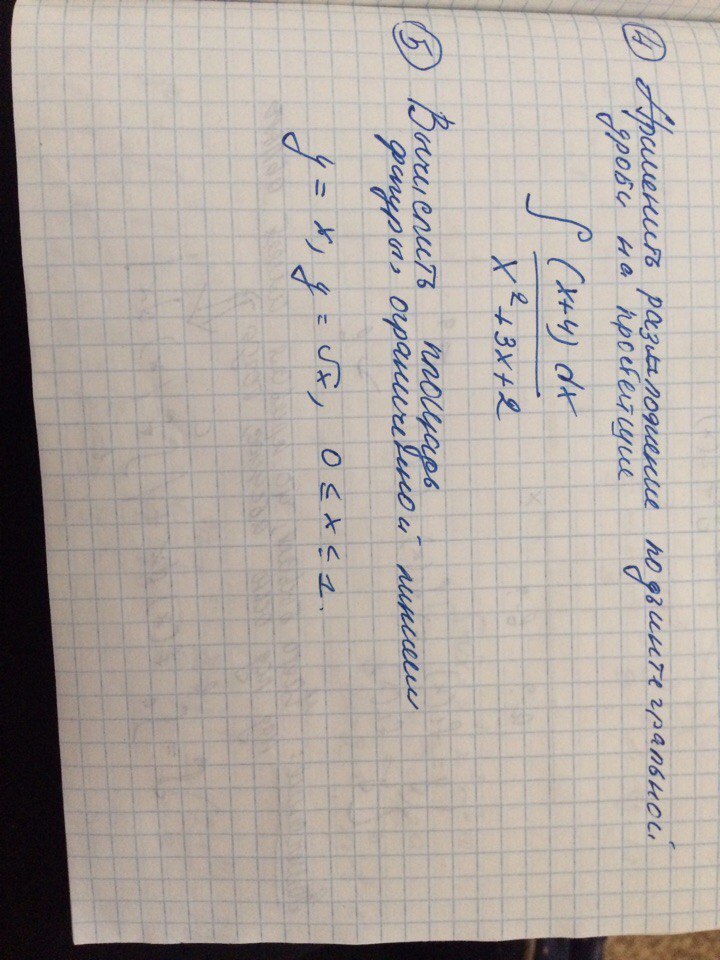 ④ Применить разложение подъинтегральной
дроби на простейшие
∫ (x+4) dx
x² + 3x + 2
⑤ Вычислить площадь
фигуры, ограниченной линиями
y = x, y = √x, 0 ≤ x ≤ 1.